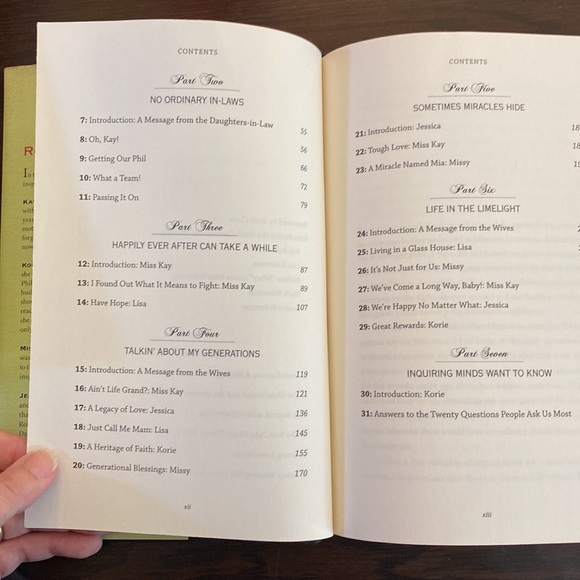 CONTENTS
Part Two
NO ORDINARY IN-LAWS
7: Introduction: A Message from the Daughters-in-Law 55
8: Oh, Kay! 56
9: Getting Our Phil 66
10: What a Team! 72
11: Passing It On 79
Part Three
HAPPILY EVER AFTER CAN TAKE A WHILE
12: Introduction: Miss Kay 87
13: I Found Out What It Means to Fight: Miss Kay 89
14: Have Hope: Lisa 107
Part Four
TALKIN' ABOUT MY GENERATIONS
15: Introduction: A Message from the Wives 119
16: Ain't Life Grand?: Miss Kay 121
17: A Legacy of Love: Jessica 136
18: Just Call Me Mam: Lisa 145
19: A Heritage of Faith: Korie 155
20: Generational Blessings: Missy 170
xii
CONTENTS
Part Five
SOMETIMES MIRACLES HIDE
21: Introduction: Jessica
22: Tough Love: Miss Kay
23: A Miracle Named Mia: Missy
Part Six
LIFE IN THE LIMELIGHT
24: Introduction: A Message from the Wives
25: Living in a Glass House: Lisa
26: It's Not Just for Us: Missy
27: We've Come a Long Way, Baby!: Miss Kay
28: We're Happy No Matter What: Jessica
29: Great Rewards: Korie
Part Seven
INQUIRING MINDS WANT TO KNOW
30: Introduction: Korie
31: Answers to the Twenty Questions People Ask Us Most
xiii